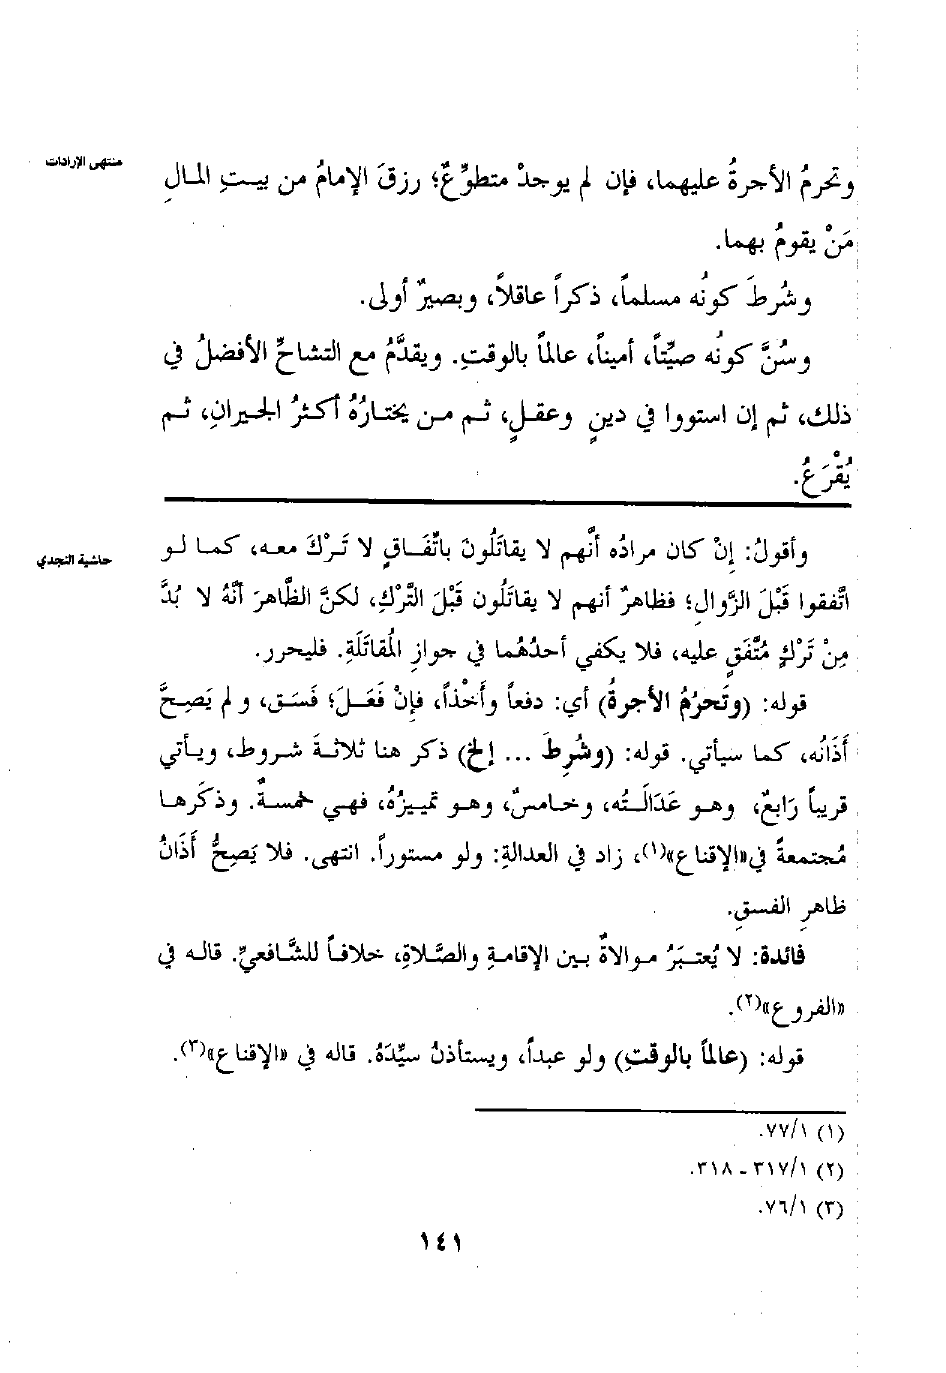 منتهى الإرادات
وتحرمُ الأجرةُ عليهما، فإن لم يوجدْ متطوِّعٌ؛ رزقَ الإمامُ من بيتِ المالِ
مَنْ يقومُ بهما.
وشُرطَ كونُه مسلماً، ذكراً عاقلاً، وبصيرٌ أولى.
وسُنَّ كونُه صيِّتاً، أميناً، عالماً بالوقتِ. ويقدَّمُ مع التشاحِّ الأفضلُ في
ذلك، ثم إن استووا في دينٍ وعقلٍ، ثم من يختارُهُ أكثرُ الجيرانِ، ثم
يُقْرَعُ.
حاشية النجدي
وأقولُ: إنْ كان مرادُه أنَّهم لا يقاتَلُونَ باتِّفَاقٍ لا تَرْكَ معه، كما لو
اتَّفقوا قَبْلَ الزَّوالِ؛ فظاهرٌ أنهم لا يقاتَلُون قَبْلَ التَّركِ، لكنَّ الظَّاهرَ أنَّهُ لا بُدَّ
مِنْ تَرْكٍ مُتَّفَقٍ عليه، فلا يكفي أحدُهُما في جوازِ المُقاتَلَةِ. فليحرر.
قوله: (وتَحرُمُ الأجرةُ) أي: دفعاً وأَخْذاً، فإنْ فَعَلَ؛ فَسَق، ولم يَصِحَّ
أَذَانُه، كما سيأتي. قوله: (وشُرِطَ ... إلخ) ذكر هنا ثلاثةَ شروط، ويأتي
قريباً رَابعٌ، وهو عَدَالَتُه، وخامسٌ، وهو تمييزُهُ، فهي خمسةٌ. وذكَرها
مُجتمعةً في «الإقناع»(١)، زاد في العدالةِ: ولو مستوراً. انتهى. فلا يَصِحُّ أَذَانُ
ظاهرِ الفسقِ.
فائدة: لا يُعتبَرُ موالاةٌ بين الإقامةِ والصَّلاةِ، خلافاً للشَّافعيِّ. قاله في
«الفروع»(٢).
قوله: (عالماً بالوقتِ) ولو عبداً، ويستأذنُ سيِّدَهُ. قاله في «الإقناع»(٣).
(١) ٧٧/١.
(٢) ٣١٧/١ - ٣١٨.
(٣) ٧٦/١.
١٤١